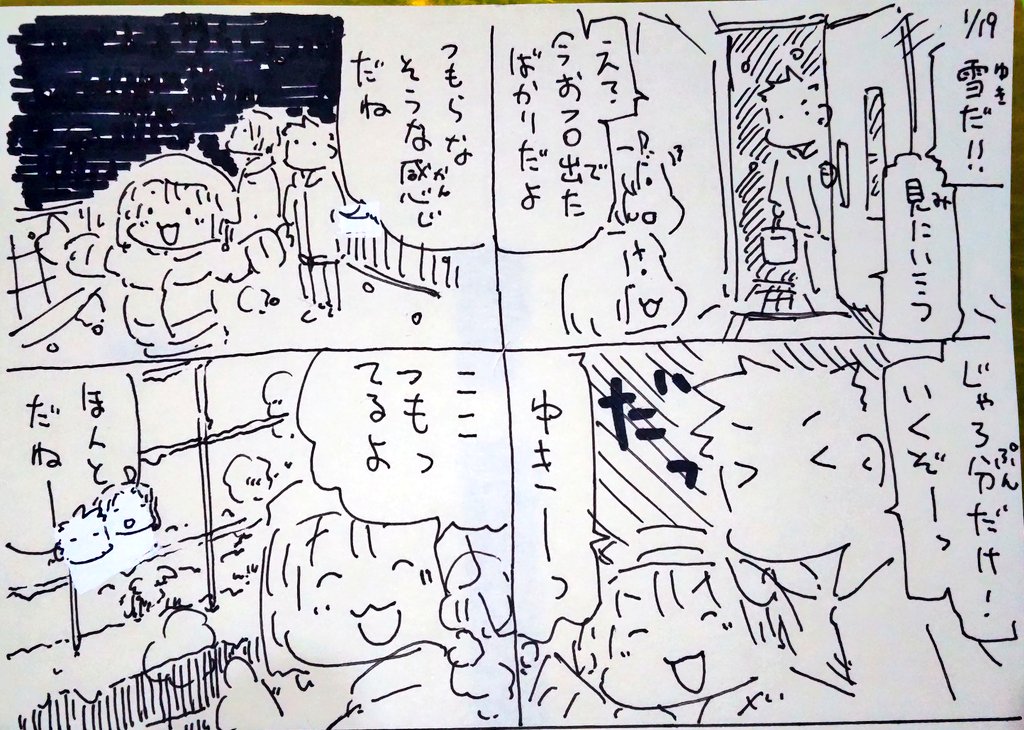 1/19
雪だ!!
ゆき
見にいこっ
み
え?
今おフロ出た
で
ばかりだよ
じゃ5分だけ!
ぷん
いくぞーっ
だっ
ゆきーっ
つもらな
そうな感じ
かん
だね
ここ
つもっ
てるよ
ほんと
だねー